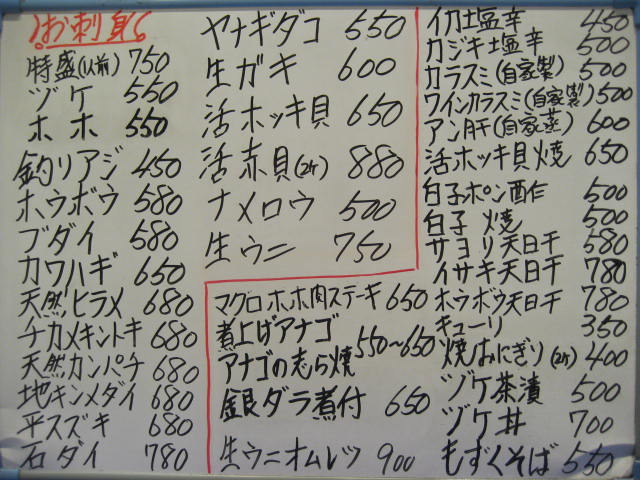 お刺身
特盛(1人前) 750
ヅケ 550
ホホ 550
釣りアジ 450
ホウボウ 580
ブダイ 580
カワハギ 650
天然ヒラメ 680
チカメキントキ 680
天然カンパチ 680
地キンメダイ 680
平スズキ 680
石ダイ 780
ヤナギダコ 550
生ガキ 600
活ホッキ貝 650
活赤貝(2ケ) 880
ナメロウ 500
生ウニ 750
マグロホホ肉ステーキ 650
煮上げアナゴ
アナゴの志ら焼 550~650
銀ダラ煮付 650
生ウニオムレツ 900
イカ塩辛 450
カジキ塩辛 500
カラスミ(自家製) 500
ワインカラスミ(自家製) 500
アン肝(自家蒸) 600
活ホッキ貝焼 650
白子ポン酢 500
白子焼 500
サヨリ天日干 580
イサキ天日干 780
ホウボウ天日干 780
キューリ 350
焼おにぎり(2ケ) 400
ヅケ茶漬 500
ヅケ丼 700
もずくそば 550